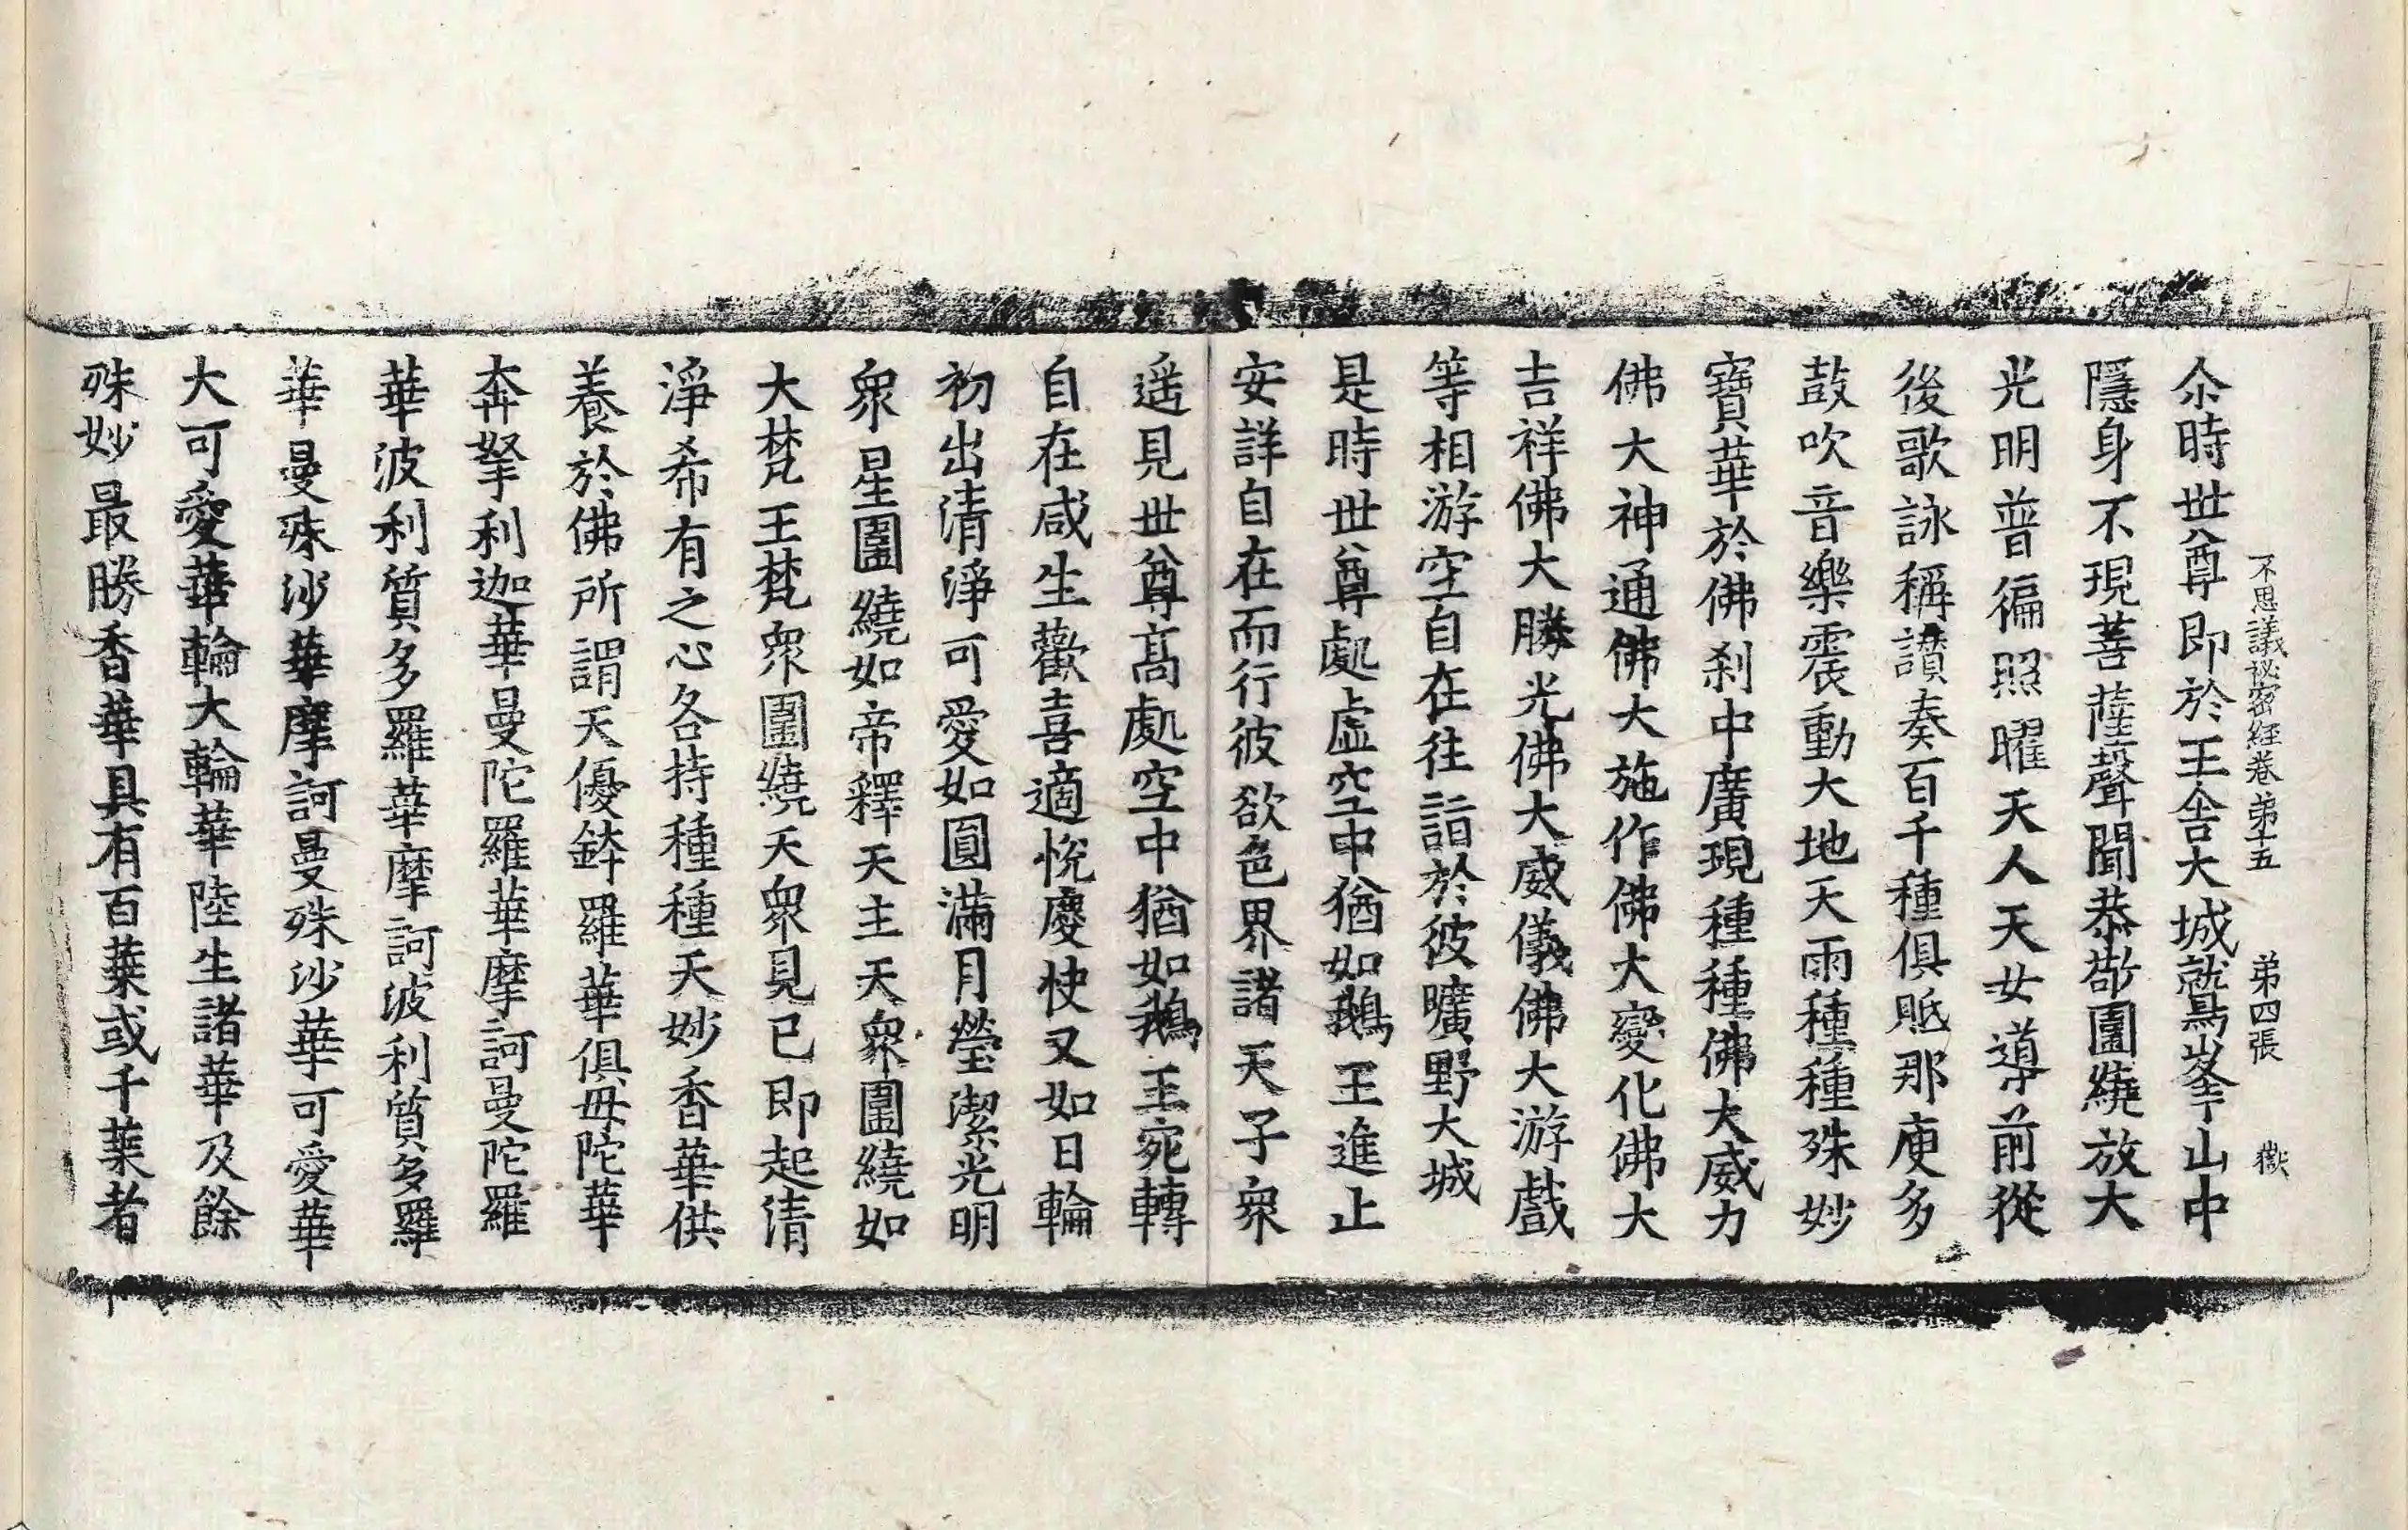 不思議祕密經卷第十五 第四張 㺉
尒時世尊即於王舍大城鷲峯山中
隱身不現菩薩聲聞恭敬圍繞放大
光明普徧照曜天人天女導前從
後歌詠稱讚奏百千種俱胝那庾多
鼓吹音樂震動大地天雨種種殊妙
寶華於佛刹中廣現種種佛大威力
佛大神通佛大施作佛大變化佛大
吉祥佛大勝光佛大威儀佛大游戲
等相游空自在往詣於彼曠野大城
是時世尊處虛空中猶如鵝王進止
安詳自在而行彼欲色界諸天子衆
遥見世尊高處空中猶如鵝王宛轉
自在咸生歡喜適悅慶快又如日輪
初出清淨可愛如圓滿月瑩潔光明
衆星圍繞如帝釋天主天衆圍繞如
大梵王梵衆圍繞天衆見已即起清
淨希有之心各持種種天妙香華供
養於佛所謂天優鉢羅華俱毋陀華
奔拏利迦華曼陀羅華摩訶曼陀羅
華波利質多羅華摩訶波利質多羅
華曼殊沙華摩訶曼殊沙華可愛華
大可愛華輪大輪華陸生諸華及餘
殊妙最勝香華具有百葉或千葉者